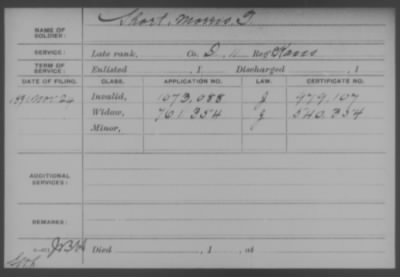 NAME OF SOLDIER: Short, Morris T.
SERVICE: Late rank, Co. Reg't Kans
TERM OF SERVICE: Enlisted , 1 Discharged , 1
DATE OF FILING. CLASS. APPLICATION NO. LAW. CERTIFICATE NO.
1891 Nov 24 Invalid, 1073,088 J 979,107
Widow, 761,354 J 540,354
Minor,
ADDITIONAL SERVICES:
REMARKS:
Died , 1 , at